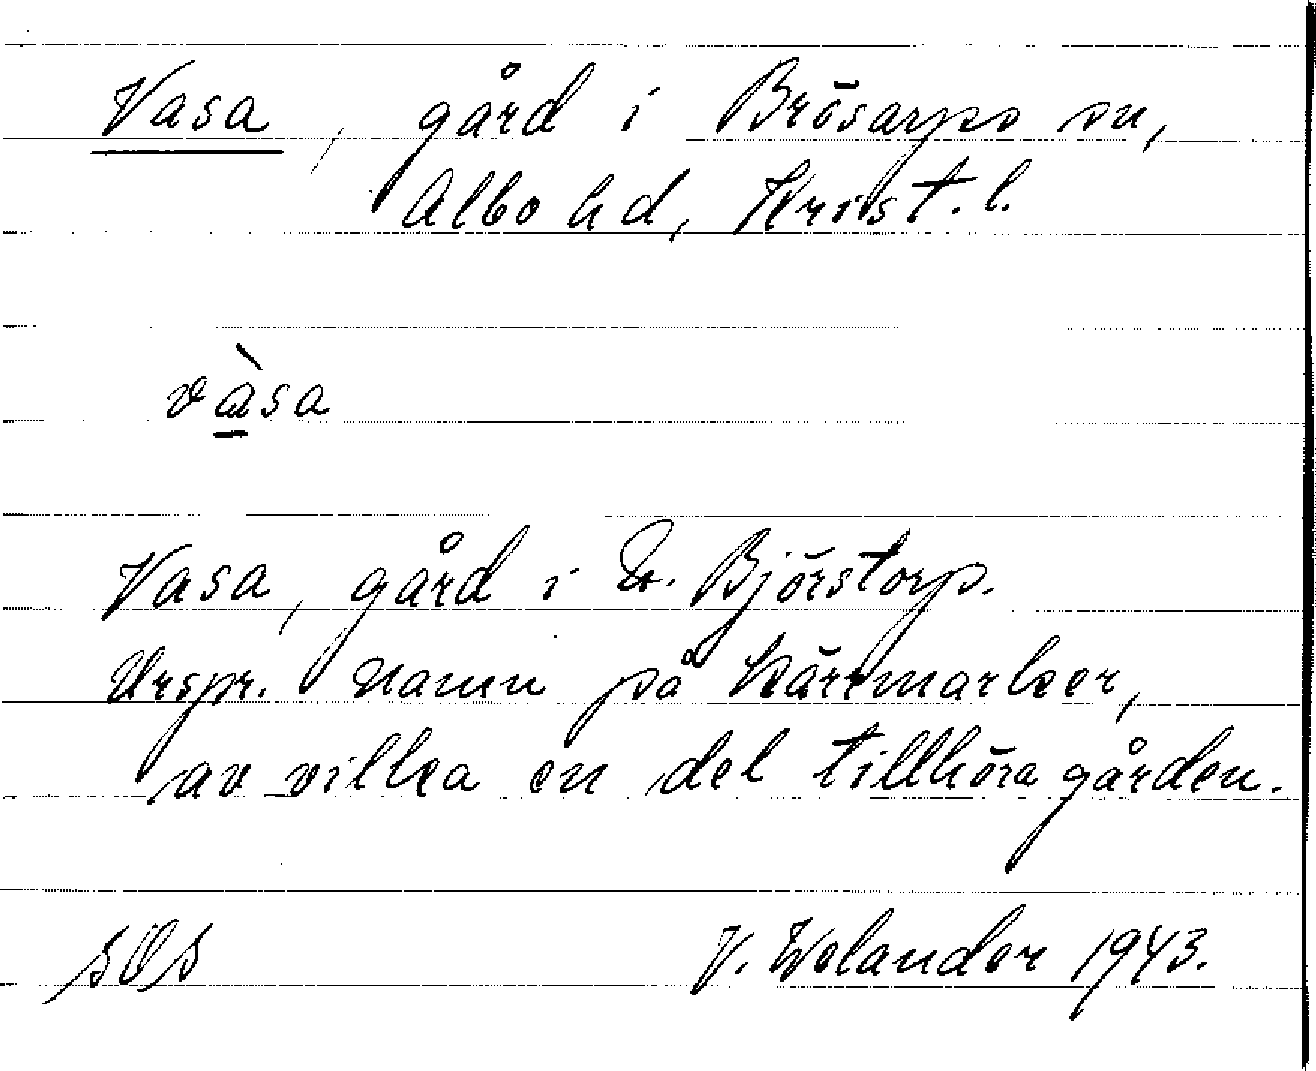 Vasa, gård i Brösarps sn,
Albo hd, Krist. l.
vàsa
Vasa, gård i Ö. Björstorp.
Urspr. namn på kärrmarker,
av vilka en del tillhöra gården.
V. Welander 1943.